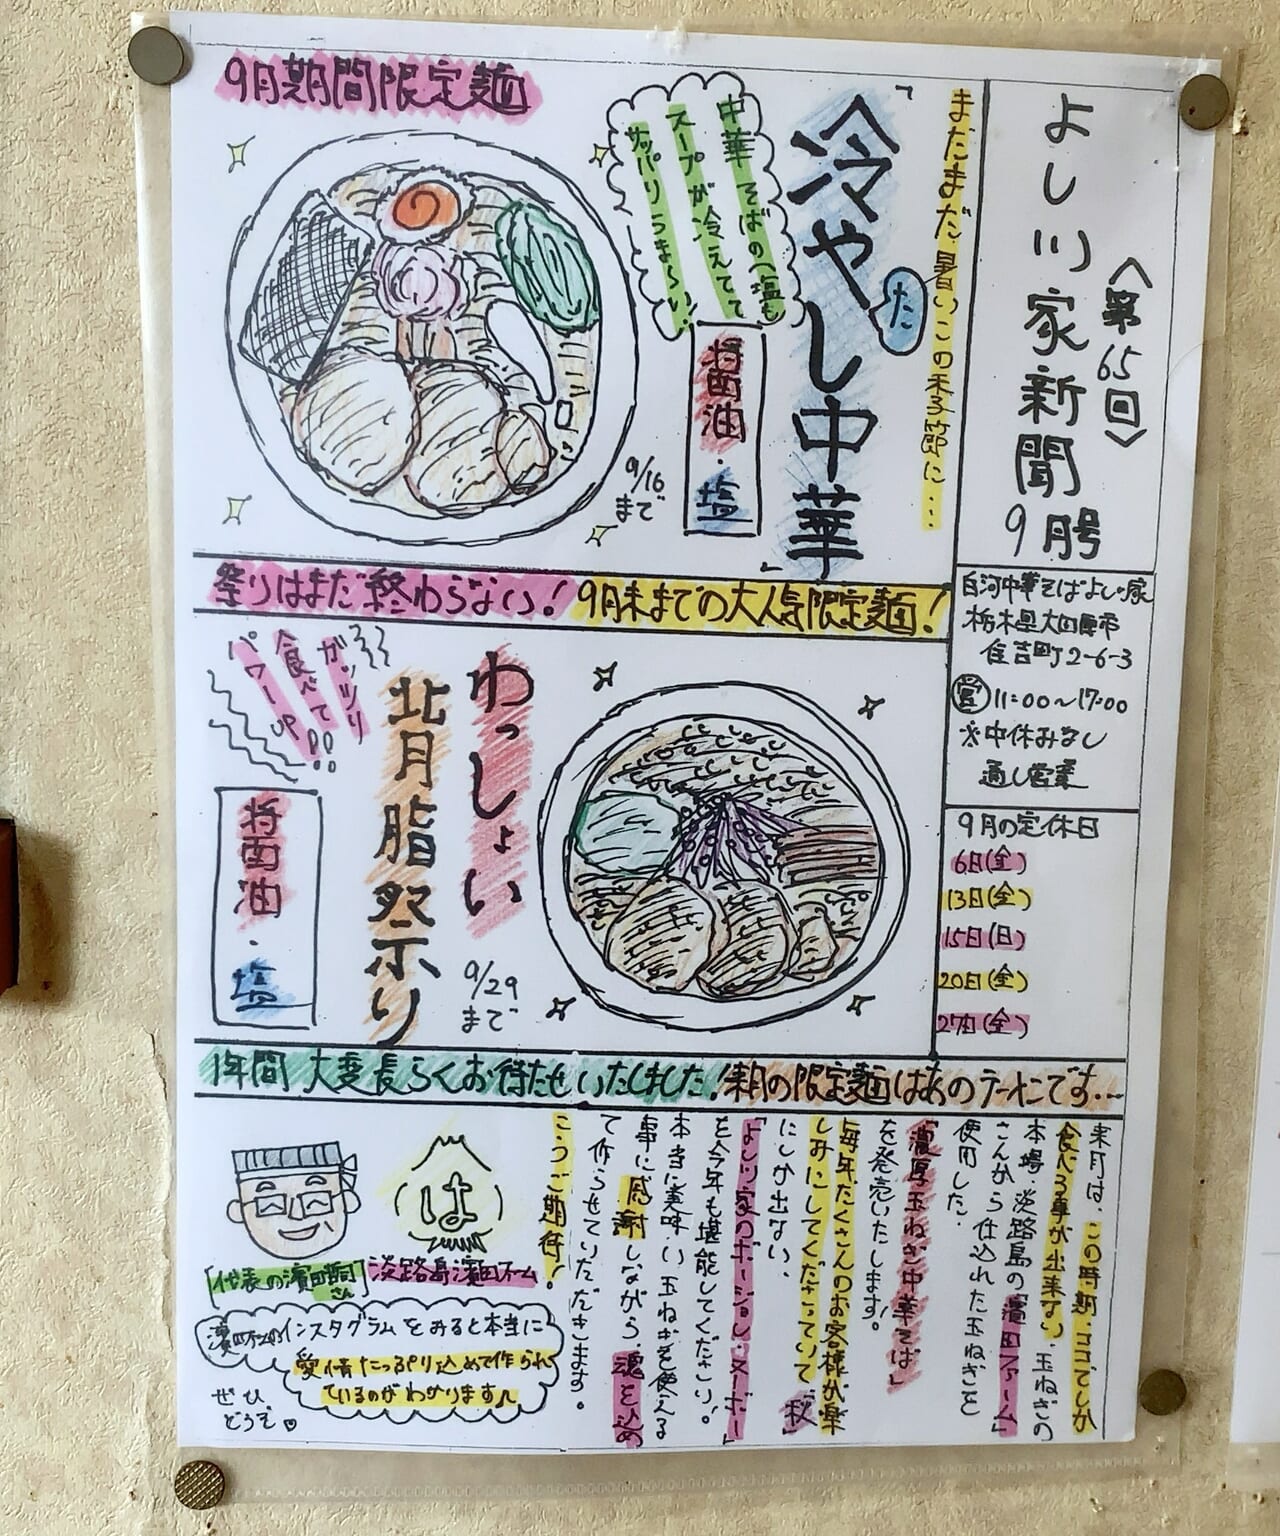 よし川家新聞
9月号
〈第65回〉
白河中華そばよし川家
栃木県大田原市
住吉町2-6-3
営11:00~17:00
※中休みなし
通し営業
9月の定休日
6日(金)
13日(金)
15日(日)
20日(金)
27日(金)
9月期間限定麺
まだまだ暑いこの季節に…
「冷やし中華」
た
中華そばの塩も
スープが冷えてて
サッパリうま~い!
醤油・塩
9/16
まで
祭りはまだ終わらない!9月末までの大人気限定麺!
わっしょい
背脂祭り
ガッツリ
食べて
パワーUP!!
醤油・塩
9/29
まで
1年間 大変長らくお待たせいたしました!来月の限定麺はあのラーメンです…
来月は、この時期、ココでしか
食べる事が出来ない、玉ねぎの
本場、淡路島の「濱田ファーム」
さんから仕込れた玉ねぎを
使用した、
「濃厚玉ねぎ中華そば」
を発売いたします。
毎年たくさんのお客様が楽
しみにしてくださっていて「秋」
にしか出ない、
「よし川家のボージョレ・ヌーボー」
を今年も堪能してください!
本当に美味い玉ねぎを使える
事に感謝しながら、魂を込め
て作らせていただきます。
こうご期待!
は
淡路島濱田ファーム
「代表の濱田さん」
濱田ファームのインスタグラムをみると本当に
愛情たっぷり込めて作られ
ているのがわかります♪
ぜひ、
どうぞ♡